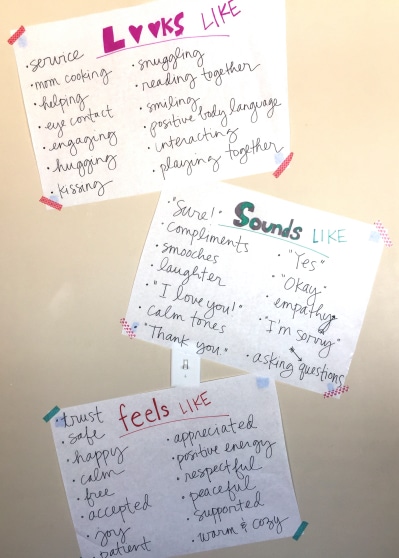 Looks LIKE
• service
• mom cooking
• helping
• eye contact
• engaging
• hugging
• kissing
• snuggling
• reading together
• smiling
• positive body language
• interacting
• playing together
Sounds LIKE
• "Sure!"
• compliments
• smooches
• laughter
• "I love you!"
• calm tones
• "Thank you."
• "Yes"
• "Okay"
• empathy
• "I'm sorry"
• asking questions
feels LIKE
• trust
• safe
• happy
• calm
• free
• accepted
• joy
• patient
• appreciated
• positive energy
• respectful
• peaceful
• supported
• warm & cozy